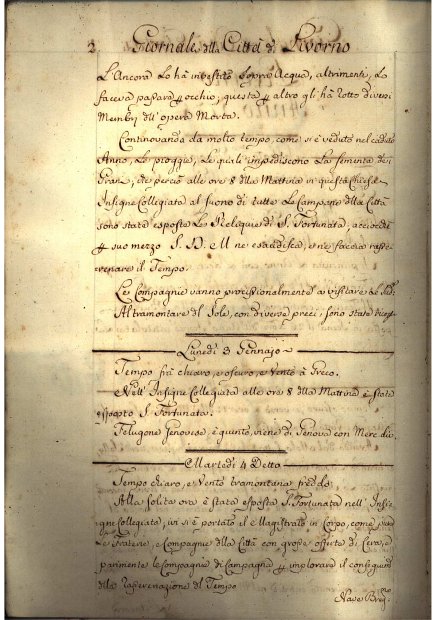 2. Giornale della Città di Livorno
L'Ancora lo hà investito sopra Acqua, altrimenti, lo
faceva passare per occhio; questa per altro gl'hà rotto diversi
Membri dell'opera Morta.
Continovando da molto tempo, come si è veduto nel caduto
Anno, le pioggie, le quali impediscono la sementa de
Grani, che perciò alle ore 8 della Mattina in questa Chiesa
Insigne Collegiata al suono di tutte le Campane della Città
sono state esposte le Reliquie di S. Fortunata, acciocchè
per suo mezzo S. D. M. ne esaudisca, e ne faccia rasse=
renare il Tempo.
Le Compagnie vanno processionalmente a visitare le
Al tramontare del Sole, con diverse preci, sono state
Lunedì 3 Gennajo
Tempo frà chiaro, e oscuro, e Vento à Greco.
Nell'Insigne Collegiata alle ore 8 della Mattina è stata
esposta S. Fortunata.
Felugone Genovese, è quinto, viene di Genova con Merc. div.
Martedì 4 Detto
Tempo chiaro, e Vento tramontana freddo.
Alla solita ora è stata esposta S. Fortunata nell'Insi=
gne Collegiata, ivi si è portato il Magistrato in Corpo, come pure
le Fraterie, e Compagnie della Città con grosse offerte di Cera, e
parimente le Compagnie di Campagna per implorare il conseguim
della rasserenazione del Tempo
Nave